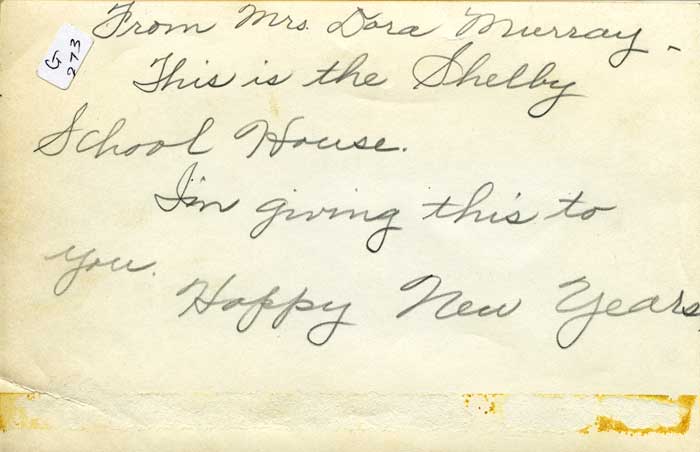 G 273
From Mrs. Dora Murray -
This is the Shelby
School House.
I'm giving this to
you.
Happy New Years